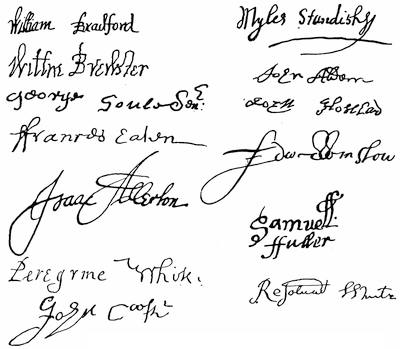 William Bradford
Myles Standish
Willm Brewster
John Alden
George Soule Senr:
John Howland
Francis Eaton
Edw Winslow
Isaac Allerton
Samuell
ffuller
Peregrine White.
Resolved White
John Cooke